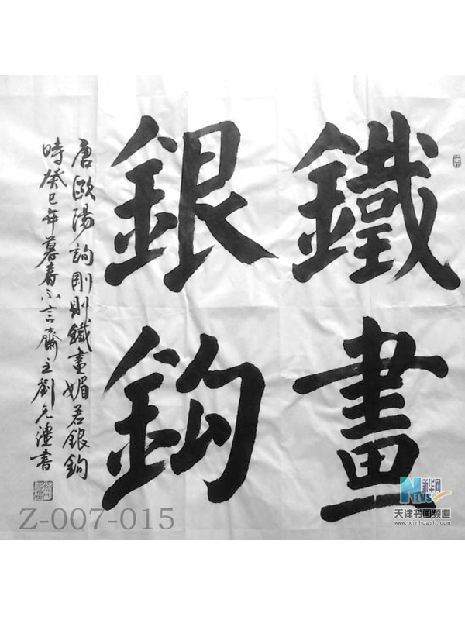 鐵畫
銀鈎
唐歐陽詢剛則鐵畫媚若銀鈎
時癸巳年暮春不言齋主劉元
書
Z-007-015
新华网
NEWS
天津书画频道